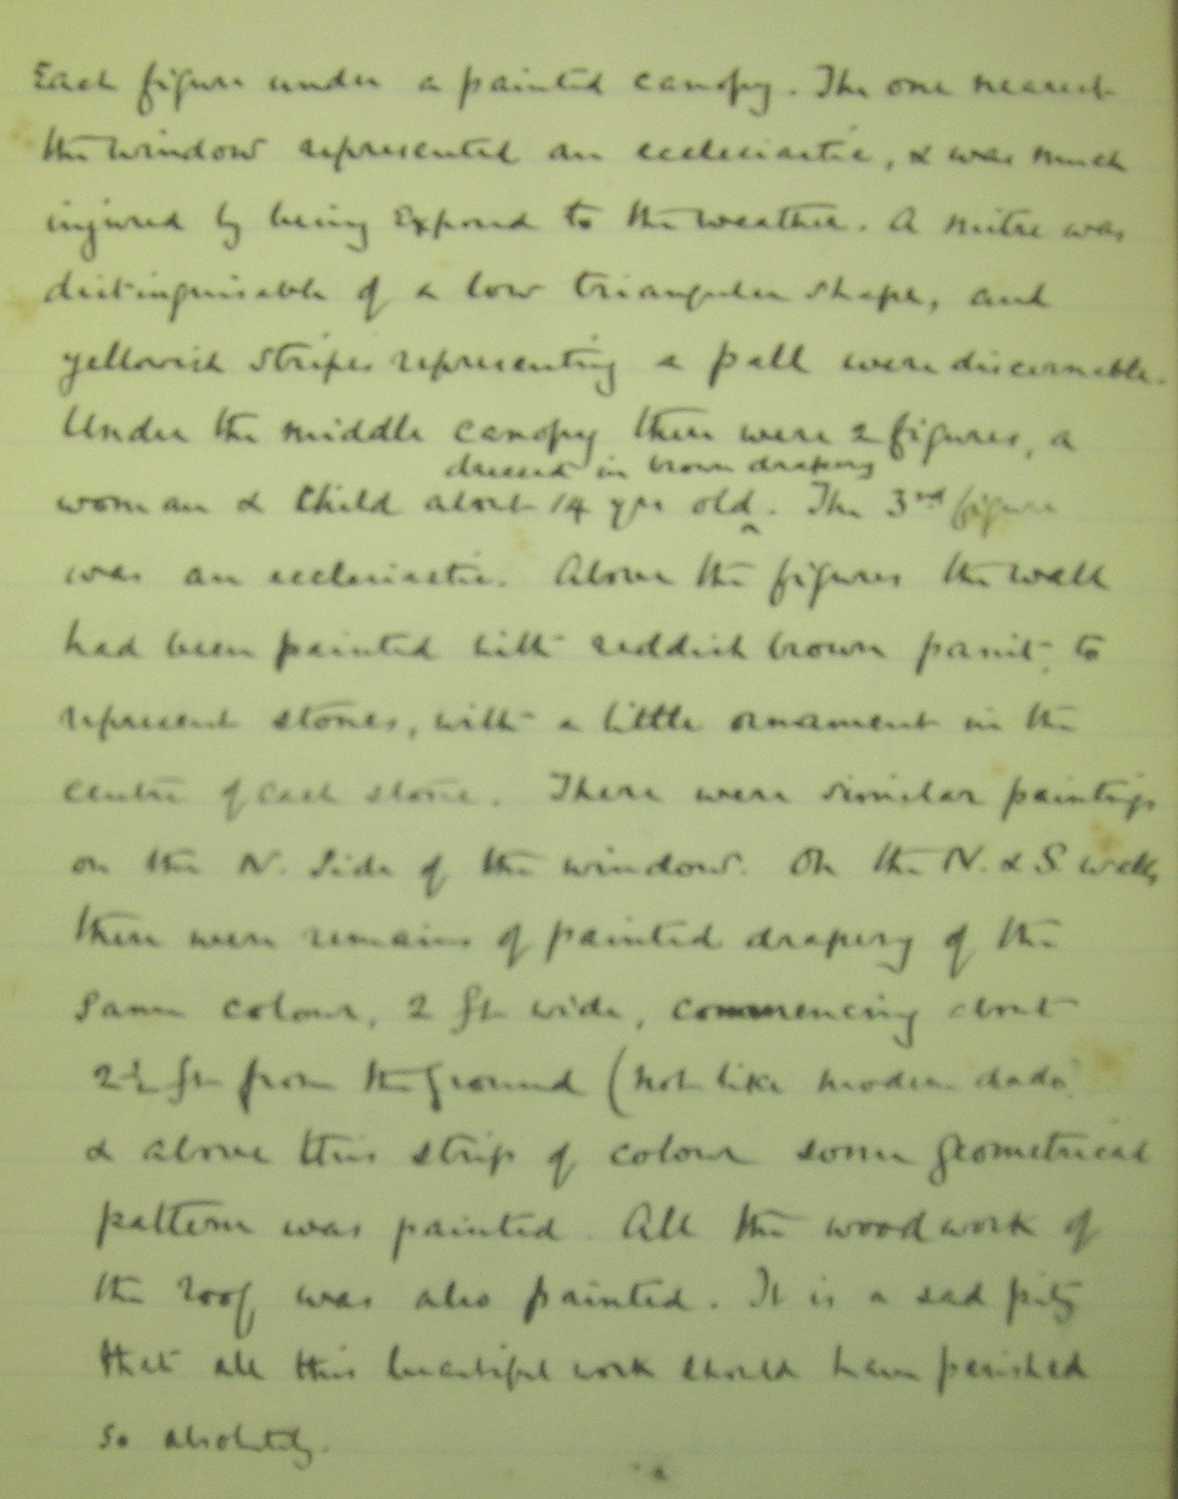 Each figure under a painted canopy. The one nearest
the window represented an ecclesiastic, & was much
injured by being Exposed to the weather. A mitre was
distinguisable of a low triangular shape, and
yellowish stripes representing a pall were discernable.
Under the middle canopy there were 2 figures, a
dressed in brown drapery
woman & Child about 14 yrs old ^. The 3rd figure
was an ecclesiastic. Above the figures the wall
had been painted with reddish brown paint, to
represent stones, with a little ornament in the
centre of each stone. There were similar paintings
on the N. Side of the window. On the N. & S. walls
there were remains of painted drapery of the
same colour, 2 ft wide, commencing about
2½ ft from the ground (not like modern dado)
& above this strip of colour some geometrical
pattern was painted. All the wood work of
the roof was also painted. It is a sad pity
that all this beautiful work should have perished
so absolutely.